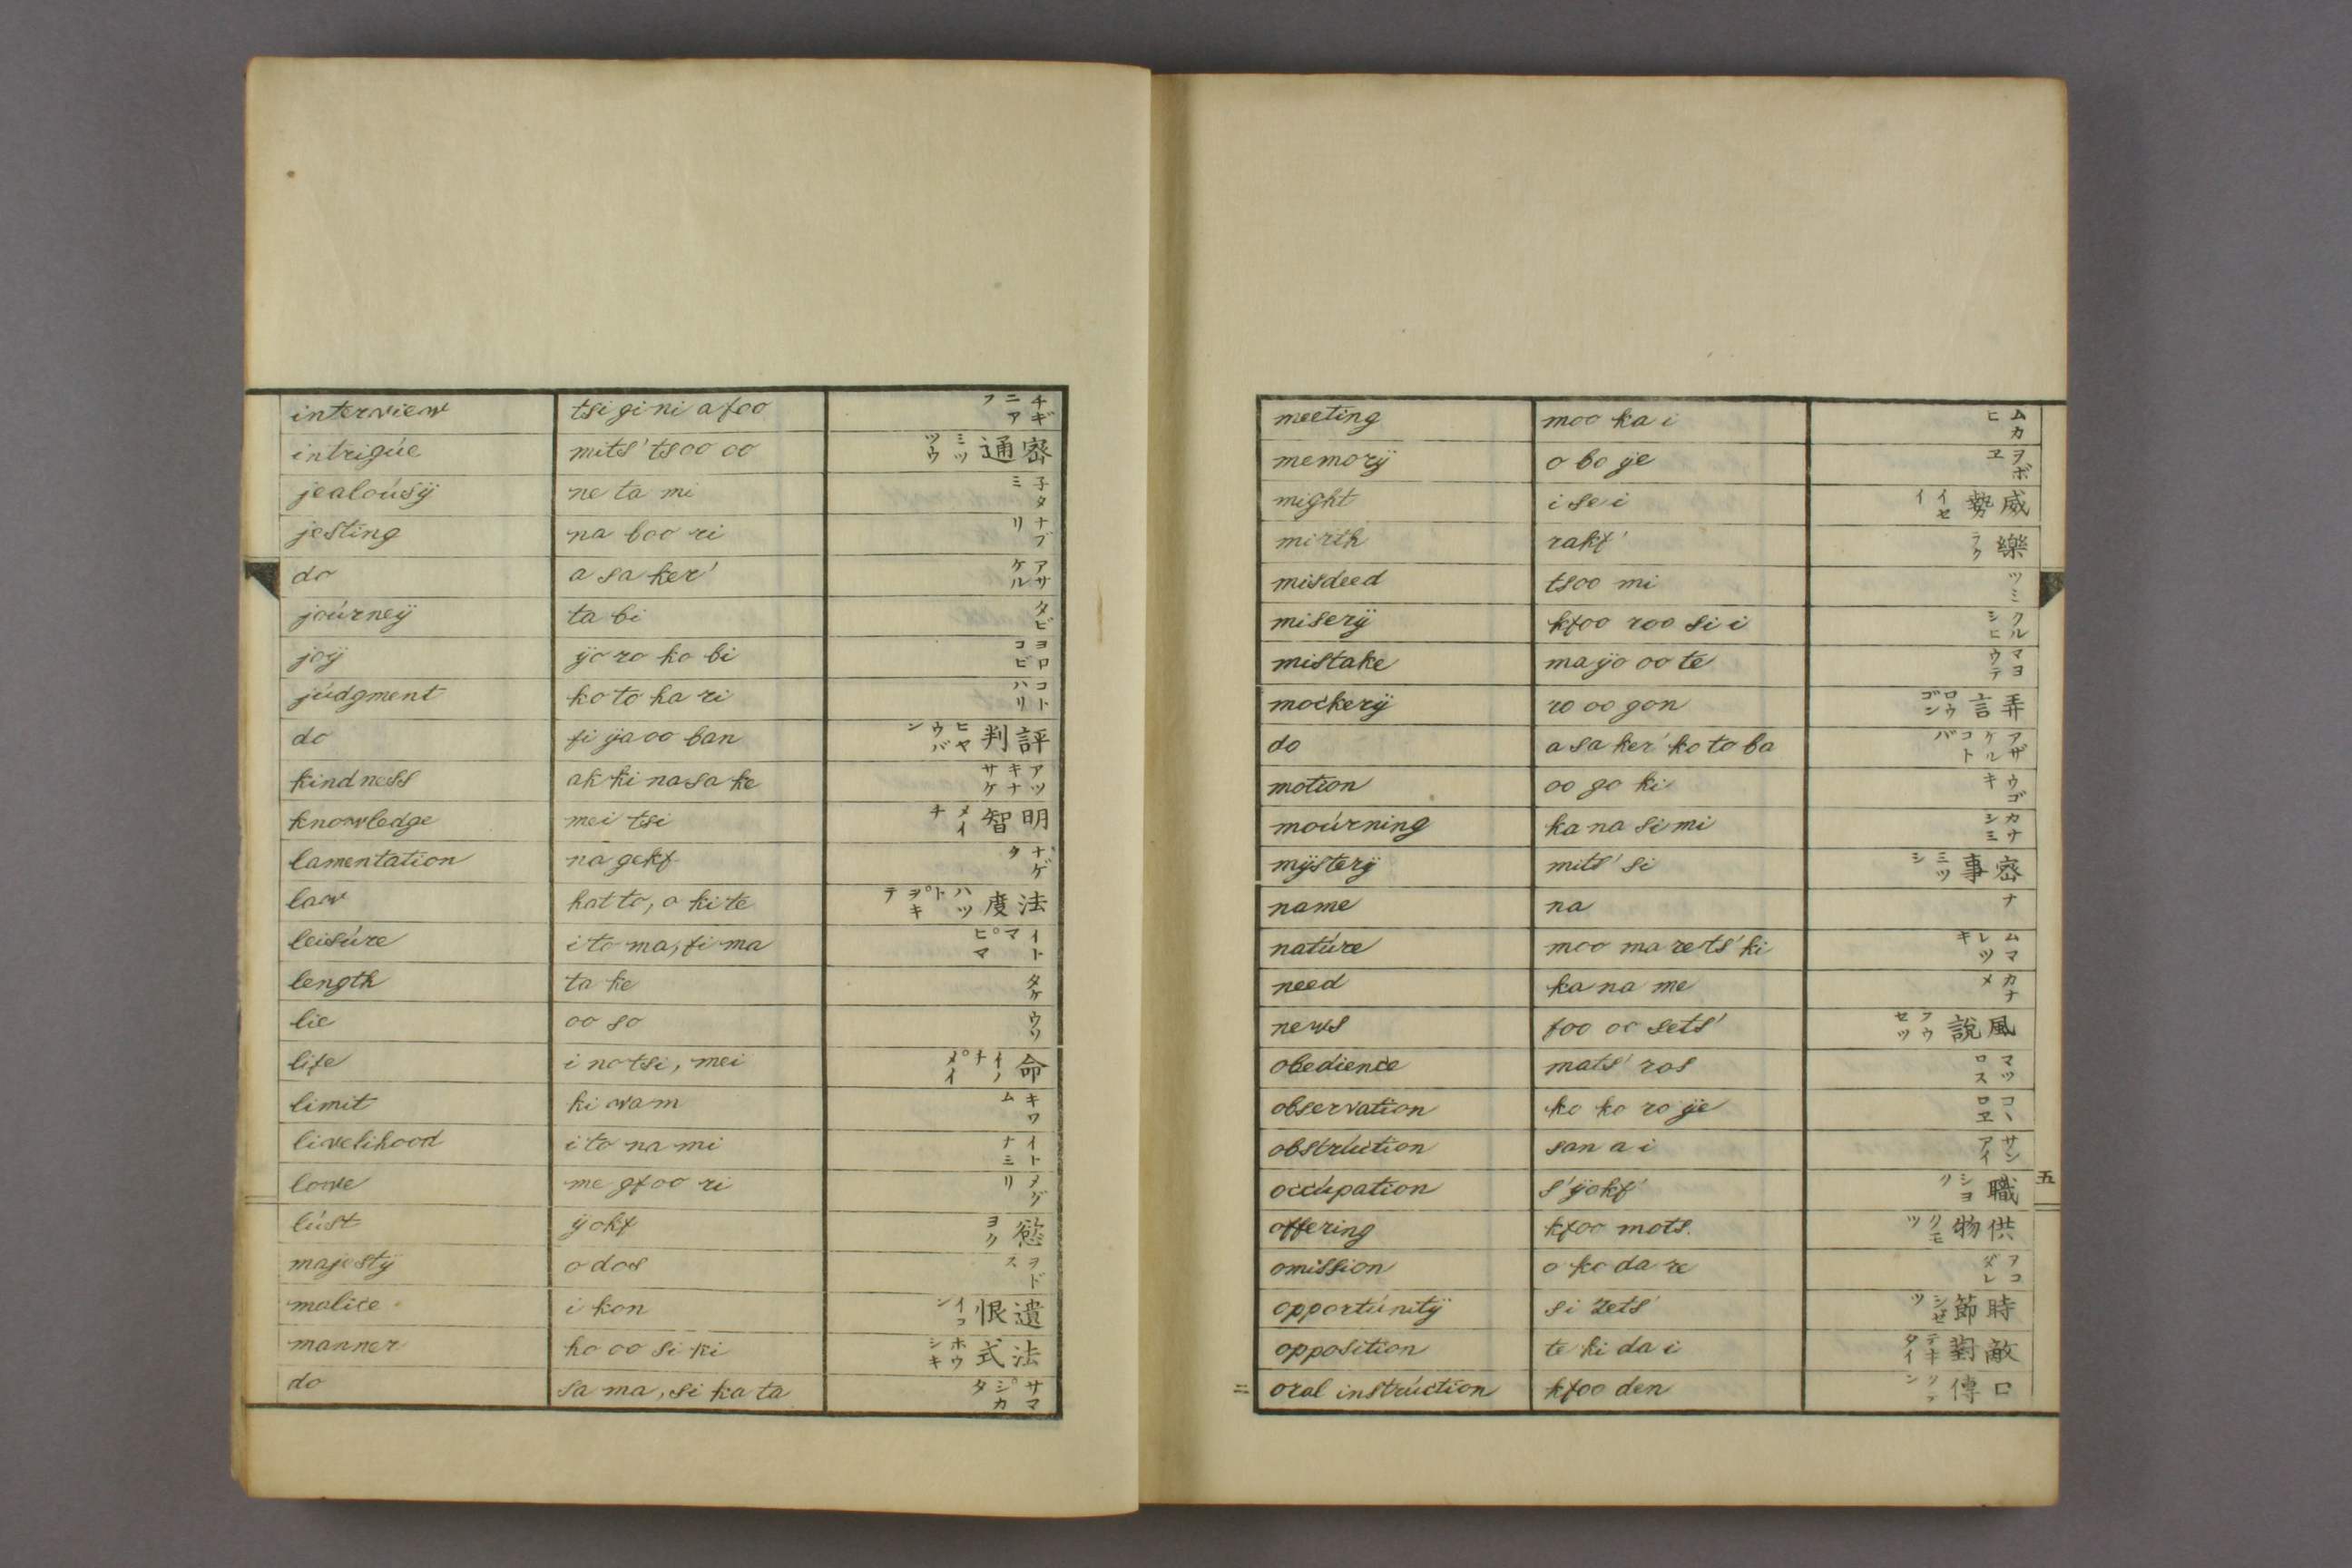 interview tsi gi ni a foo チギニアフ
intrigúe mits' tsoo oo 密通 ミツツウ
jealoúsÿ ne ta mi 子タミ
jesting na boo ri ナブリ
do a sa ker' アサケル
joúrneÿ ta bi タビ
joÿ ÿo ro ko bi ヨロコビ
júdgment ko to ha ri コトハリ
do fi ÿa oo ban 評判 ヒヤウバン
kindness ak ki na sa ke アツキナサケ
knowledge mei tsi 明智 メイチ
lamentation na gekf ナゲク
law hat to, o ki te 法度 ハツト°ヲキテ
leisúre i to ma, fi ma イトマ°ヒマ
length ta ke タケ
lie oo so ウソ
life i no tsi, mei 命 イノチ°メイ
limit ki wam キワム
livelihood i to na mi イトナミ
love me gfoo ri メグリ
lúst ÿokf 慾 ヨク
majestÿ o dos ヲドス
malice i kon 遺恨 イコン
manner ho oo si ki 法式 ホウシキ
do sa ma, si ka ta サマ°シカタ
meeting moo ka i ムカヒ
memorÿ o bo ÿe ヲボヱ
might i se i 威勢 イセイ
mirth rakf' 樂 ラク
misdeed tsoo mi ツミ
miserÿ kfoo roo si i クルシヒ
mistake ma ÿo oo te マヨウテ
mockerÿ ro oo gon 弄言 ロウゴン
do a sa ker' ko to ba アザケルコトバ
motion oo go ki ウゴキ
moúrning ka na si mi カナシミ
mÿsterÿ mits' si 密事 ミツシ
name na ナ
natúre moo ma rets' ki ムマレツキ
need ka na me カナメ
news foo oo sets' 風說 フウセツ
obedience mats' ros マツロス
observation ko ko ro ÿe コヽロヱ
obstrúction san a i サンアイ
occúpation s'ÿokf' 職 シヨク
五
offering kfoo mots. 供物 クモツ
omission o ko da re ヲコダレ
opportúnitÿ si zets' 時節 シゼツ
opposition te ki da i 敵對 テキタイ
oral instrúction kfoo den 口傳 クデン
二